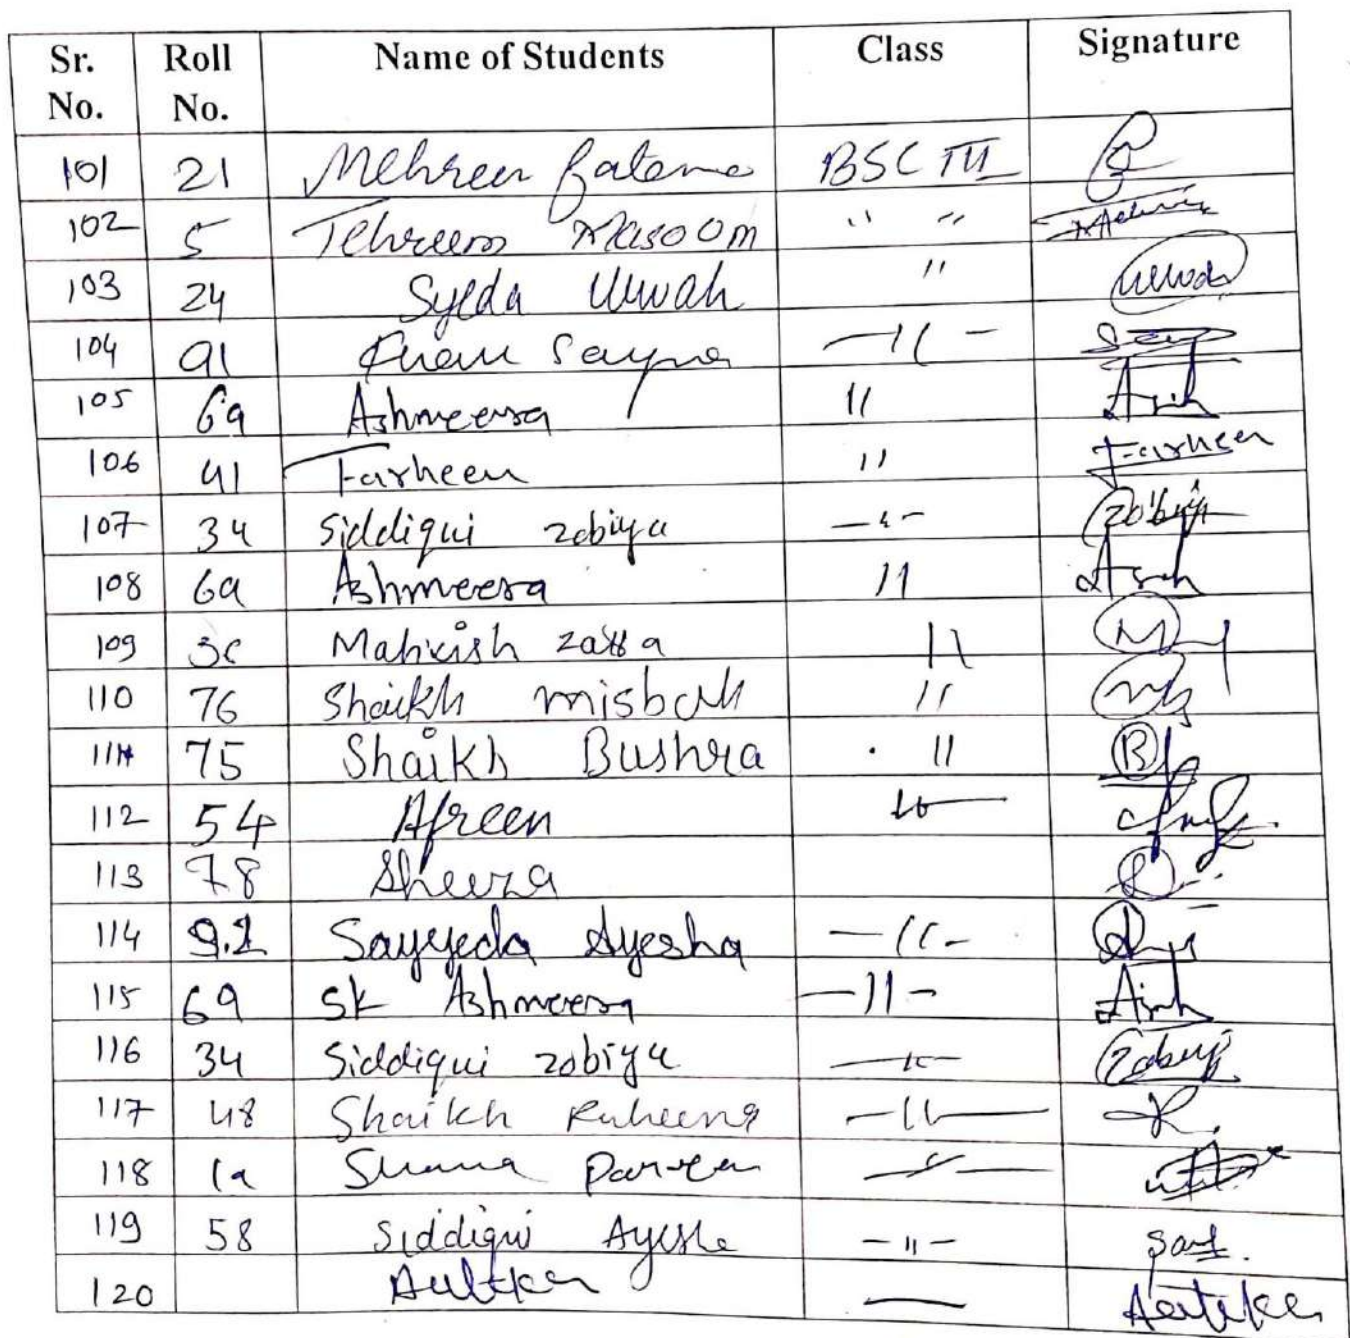 Sr. No. Roll No. Name of Students Class Signature
101 21 Mehreen fatema BSC III
102 5 Tehreem Masoom " "
103 24 Syeda Urwah " Urwah
104 91 Khan Sayma —11—
105 69 Ashmeera 11
106 41 Farheen 11 Farheen
107 34 Siddiqui zobiya —"— Zobiya
108 69 Ashmeera 11
109 Mahvish 11
110 76 Shaikh misbah 11
111 75 Shaikh Bushra 11 B
112 54 Afreen
113 78 Sheeza
114 92 Sayyeda Ayesha —11—
115 69 Sk Ashmeera —11—
116 34 Siddiqui zobiya —"—
117 48 Shaikh Ruheena —11—
118 19 Parveen —"—
119 58 Siddiqui Ayesha —11—
120 —